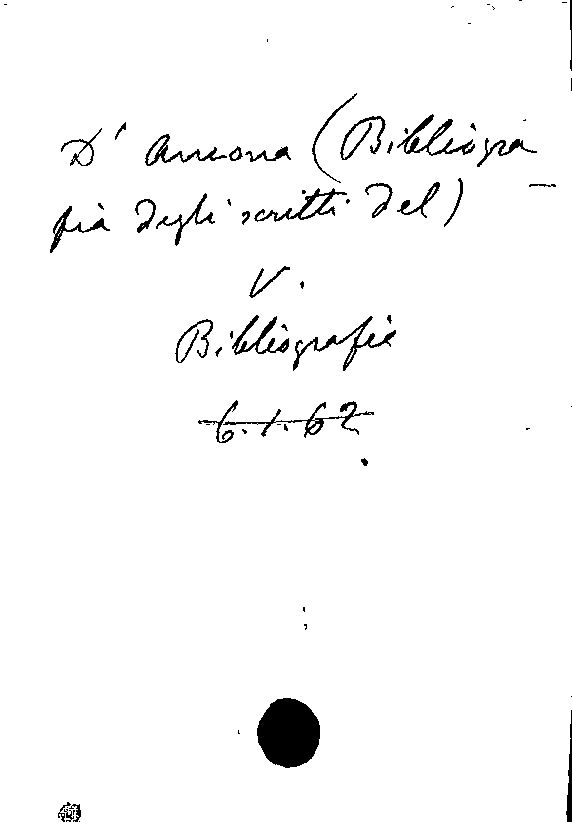 D'Ancona (Bibliogra
fia degli scritti del)
V.
Bibliografie
6.1.62